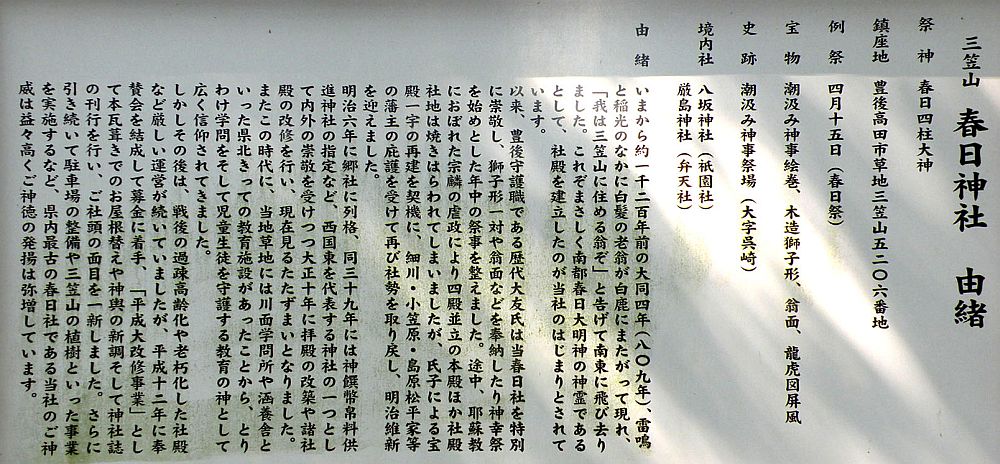 三笠山　春日神社　由緒
祭　神　春日四柱大神
鎮座地　豊後高田市草地三笠山五二〇六番地
例　祭　四月十五日（春日祭）
宝　物　潮汲み神事絵巻、木造獅子形、翁面、龍虎図屏風
史　跡　潮汲み神事祭場（大字呉崎）
境内社　八坂神社（祇園社）
厳島神社（弁天社）
由　緒
いまから約一千二百年前の大同四年（八〇九年）、雷鳴
と稲光のなかに白髪の老翁が白鹿にまたがって現れ、
「我は三笠山に住める翁ぞ」と告げて南東に飛び去り
ました。これぞまさしく南都春日大明神の神霊である
として、社殿を建立したのが当社のはじまりとされて
います。
以来、豊後守護職である歴代大友氏は当春日社を特別
に崇敬し、獅子形一対や翁面などを奉納したり神幸祭
を始めとした年中の祭事を整えました。途中、耶蘇教
におぼれた宗麟の虐政により四殿並立の本殿ほか社殿
社地は焼きはらわれてしまいましたが、氏子による宝
殿一宇の再建を契機に、細川・小笠原・島原松平家等
の藩主の庇護を受けて再び社勢を取り戻し、明治維新
を迎えました。
明治六年に郷社に列格、同三十九年には神饌幣帛料供
進神社の指定など、西国東を代表する神社の一つとし
て内外の崇敬を受けつつ大正十年に拝殿の改築や諸社
殿の改修を行い、現在見るたたずまいとなりました。
またこの時代に、当地草地には川面学問所や涵養舎と
いった県北きっての教育施設があったことから、とり
わけ学問をそして児童生徒を守護する教育の神として
広く信仰されてきました。
しかしその後は、戦後の過疎高齢化や老朽化した社殿
など厳しい運営が続いていましたが、平成十二年に奉
賛会を結成して募金に着手、「平成大改修事業」とし
て本瓦葺きでのお屋根替えや神輿の新調そして神社誌
の刊行を行い、ご社頭の面目を一新しました。さらに
引き続いて駐車場の整備や三笠山の植樹といった事業
を実施するなど、県内最古の春日社である当社のご神
威は益々高くご神徳の発揚は弥増しています。